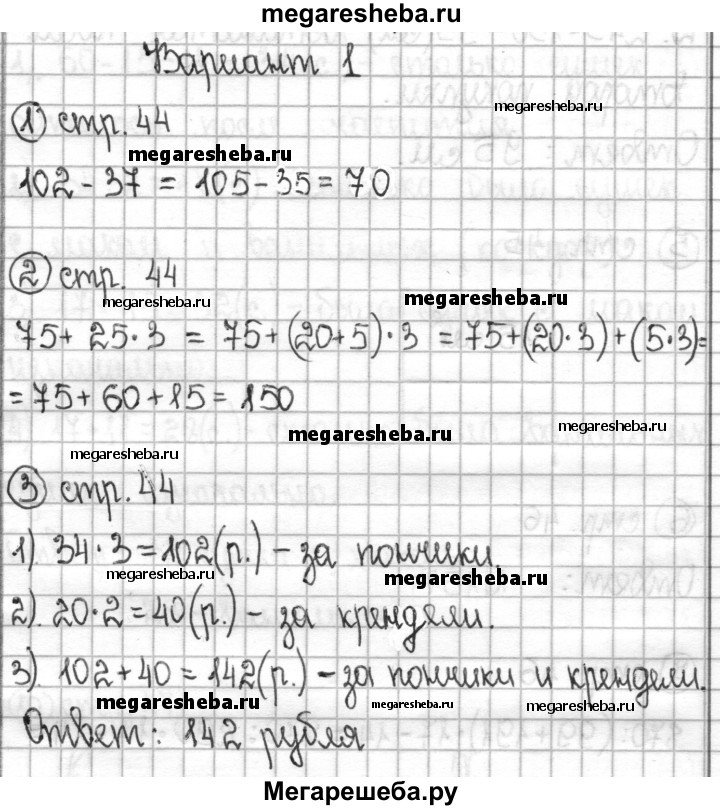 megaresheba.ru
Вариант 1
megaresheba.ru
① стр. 44
megaresheba.ru
102 - 37 = 105 - 35 = 70
② стр. 44
megaresheba.ru
megaresheba.ru
75 + 25·3 = 75 + (20+5)·3 = 75+(20·3)+(5·3)=
= 75 + 60 + 15 = 150
megaresheba.ru
megaresheba.ru
megaresheba.ru
③ стр. 44
1). 34·3 = 102 (р.) - за пончики.
megaresheba.ru
megaresheba.ru
2). 20·2 = 40 (р.) - за крендели.
3). 102 + 40 = 142 (р.) - за пончики и крендели.
megaresheba.ru
megaresheba.ru
megaresheba.ru
Ответ: 142 рубля
Мегарешеба.ру